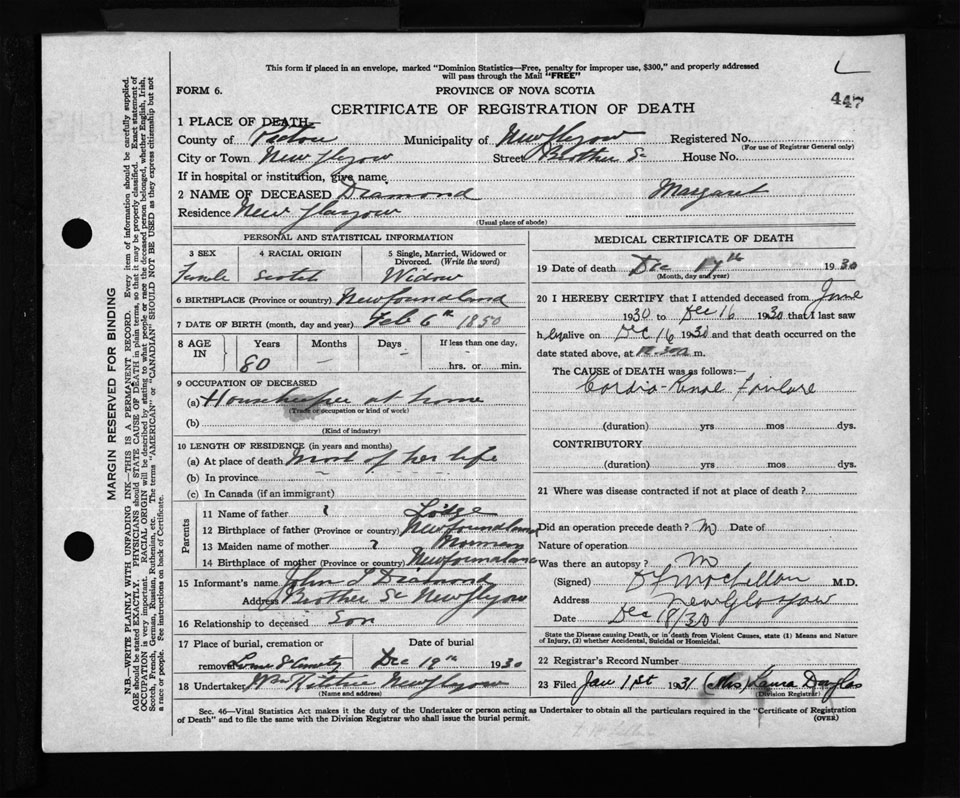 This form if placed in an envelope, marked "Dominion Statistics—Free, penalty for improper use, $300," and properly addressed
will pass through the Mail "FREE"
447
FORM 6.
PROVINCE OF NOVA SCOTIA
CERTIFICATE OF REGISTRATION OF DEATH
1 PLACE OF DEATH
County of Pictou Municipality of New Glasgow Registered No.
(For use of Registrar General only)
City or Town New Glasgow Street Brother St House No.
If in hospital or institution, give name
2 NAME OF DECEASED Diamond Margaret
Residence New Glasgow
(Usual place of abode)
PERSONAL AND STATISTICAL INFORMATION
3 SEX
4 RACIAL ORIGIN
5 Single, Married, Widowed or Divorced. (Write the word)
Female Scotch Widow
6 BIRTHPLACE (Province or country) Newfoundland
7 DATE OF BIRTH (month, day and year) Feb 6th 1850
8 AGE IN
Years Months Days If less than one day,
80 hrs. or min.
9 OCCUPATION OF DECEASED
(a) Housekeeper at home
(Trade or occupation or kind of work)
(b)
(Kind of industry)
10 LENGTH OF RESIDENCE (in years and months)
(a) At place of death most of her life
(b) In province
(c) In Canada (if an immigrant)
Parents
11 Name of father ? Lodge
12 Birthplace of father (Province or country) Newfoundland
13 Maiden name of mother ?
14 Birthplace of mother (Province or country) Newfoundland
15 Informant's name John Diamond
Address Brother St New Glasgow
16 Relationship to deceased Son
17 Place of burial, cremation or Date of burial
removal Dec 19th 1930
18 Undertaker Wm Ritchie New Glasgow
(Name and address)
MEDICAL CERTIFICATE OF DEATH
19 Date of death Dec 17th 1930
(Month, day and year)
20 I HEREBY CERTIFY that I attended deceased from June
1930 to Dec 16 1930 that I last saw
h er alive on Dec 16 1930 and that death occurred on the
date stated above, at m.
The CAUSE of DEATH was as follows:—
Cardio-Renal Failure
(duration) yrs mos dys.
CONTRIBUTORY
(duration) yrs mos dys.
21 Where was disease contracted if not at place of death?
Did an operation precede death? No Date of
Nature of operation
Was there an autopsy? No
(Signed) M.D.
Address New Glasgow
Date Dec 18/30
State the Disease causing Death, or in death from Violent Causes, state (1) Means and Nature
of Injury, (2) whether Accidental, Suicidal or Homicidal.
22 Registrar's Record Number
23 Filed Jan 1st 1931 Mrs Laura Douglas
(Division Registrar)
Sec. 46—Vital Statistics Act makes it the duty of the Undertaker or person acting as Undertaker to obtain all the particulars required in the "Certificate of Registration
of Death" and to file the same with the Division Registrar who shall issue the burial permit.
(OVER)
MARGIN RESERVED FOR BINDING
N.B.—WRITE PLAINLY WITH UNFADING INK—THIS IS A PERMANENT RECORD. Every item of information should be carefully supplied.
AGE should be stated EXACTLY. PHYSICIANS should STATE CAUSE OF DEATH in plain terms, so that it may be properly classified. Exact statement of
OCCUPATION is very important. RACIAL ORIGIN will be described by stating to what people or race the deceased person belonged, whether English, Irish,
Scotch, French, German, Russian, Ruthenian, etc. The terms "AMERICAN" or "CANADIAN" SHOULD NOT BE USED as they express citizenship but not
a race or people. See instructions on back of Certificate.